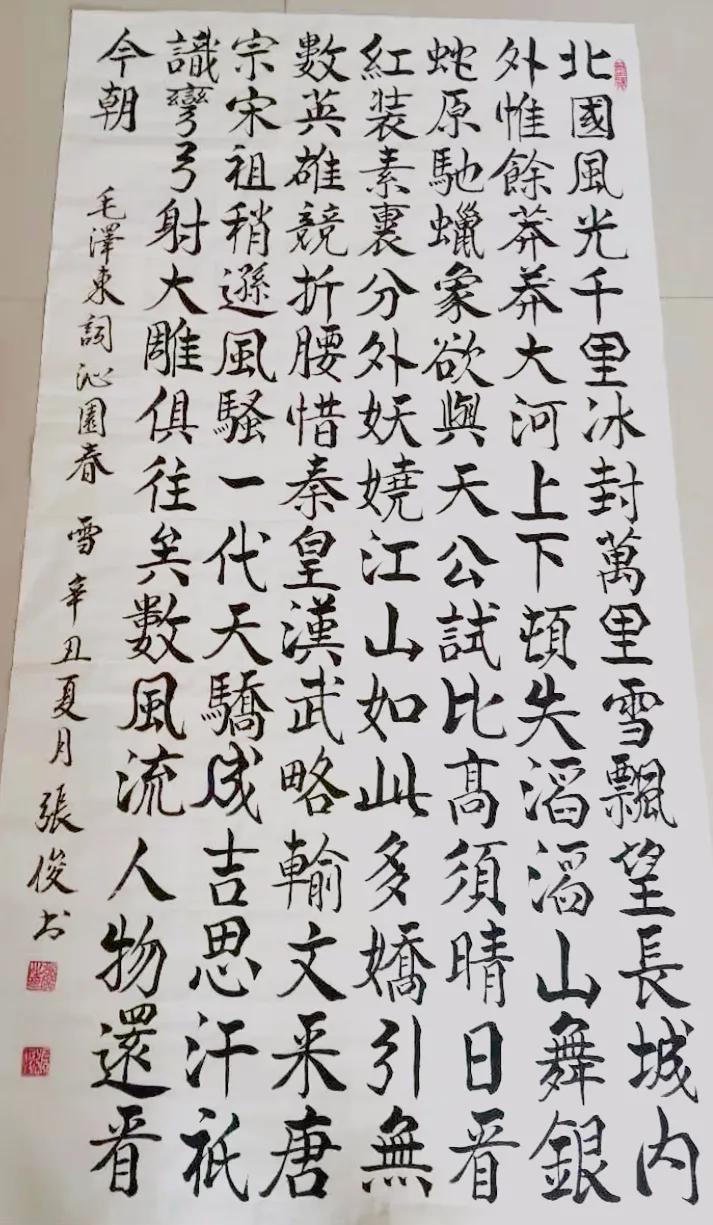 北國風光千里冰封萬里雪飄望長城内
外惟餘莽莽大河上下頓失滔滔山舞銀
蛇原馳蠟象欲與天公試比高須晴日看
紅装素裹分外妖嬈江山如此多嬌引無
數英雄競折腰惜秦皇漢武略輸文采唐
宗宋祖稍遜風騷一代天驕成吉思汗祇
識彎弓射大雕俱往矣數風流人物還看
今朝
毛澤東詞沁園春 雪 辛丑夏月 張俊书